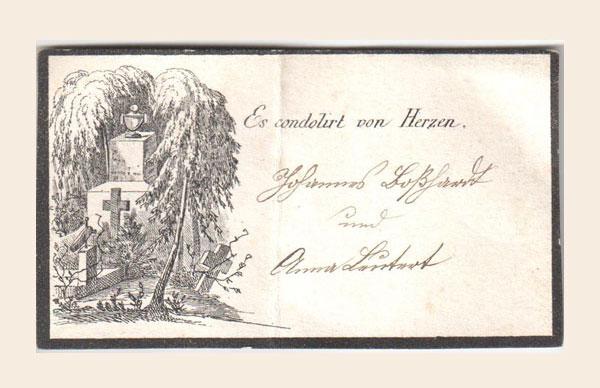 Es condolirt von Herzen.
Johannes Boßhardt
und
Anna Leutert